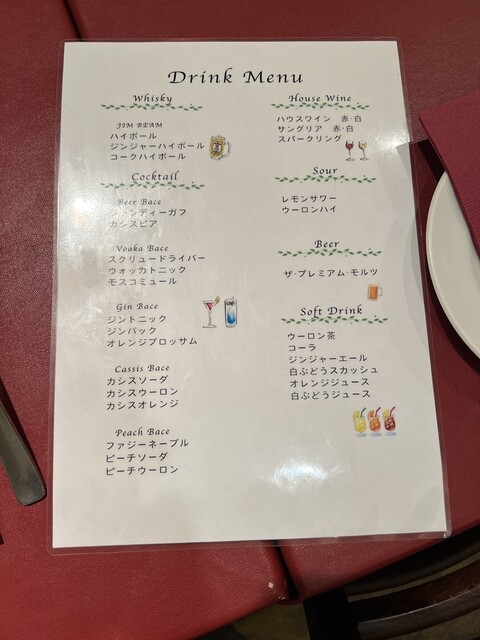 Drink Menu
Whisky
JIM BEAM
ハイボール
ジンジャーハイボール
コークハイボール
Cocktail
Beer Bace
シャンディーガフ
カシスビア
Voaka Bace
スクリュードライバー
ウォッカトニック
モスコミュール
Gin Bace
ジントニック
ジンバック
オレンジブロッサム
Cassis Bace
カシスソーダ
カシスウーロン
カシスオレンジ
Peach Bace
ファジーネーブル
ピーチソーダ
ピーチウーロン
House Wine
ハウスワイン 赤・白
サングリア 赤・白
スパークリング
Sour
レモンサワー
ウーロンハイ
Beer
ザ・プレミアム・モルツ
Soft Drink
ウーロン茶
コーラ
ジンジャーエール
白ぶどうスカッシュ
オレンジジュース
白ぶどうジュース